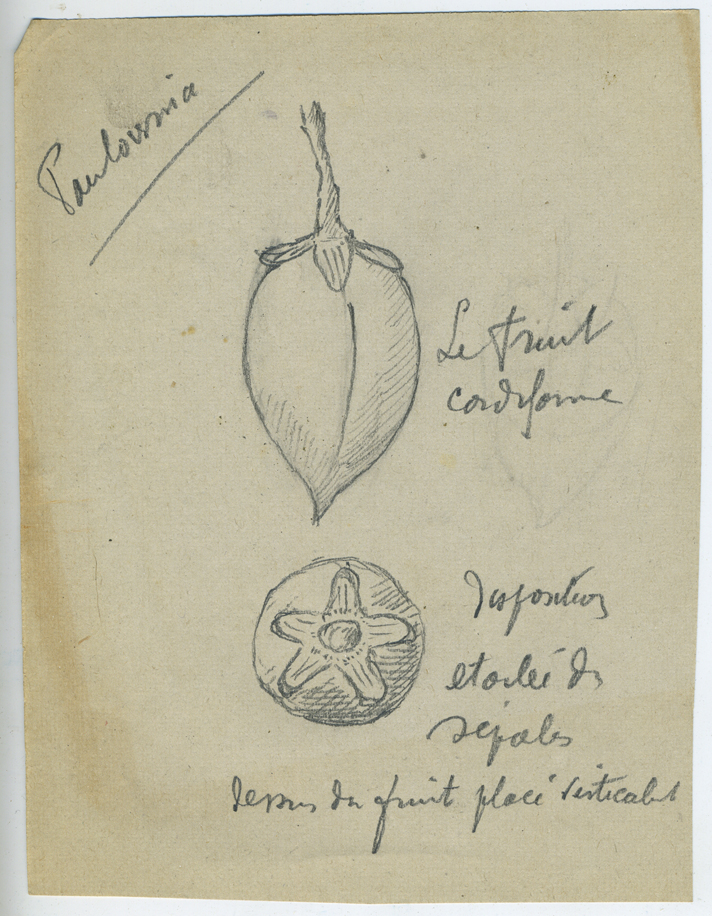 Paulownia
Le fruit
cordiforme
disposition
etoilée des
sépales
dessus du fruit placé verticalet